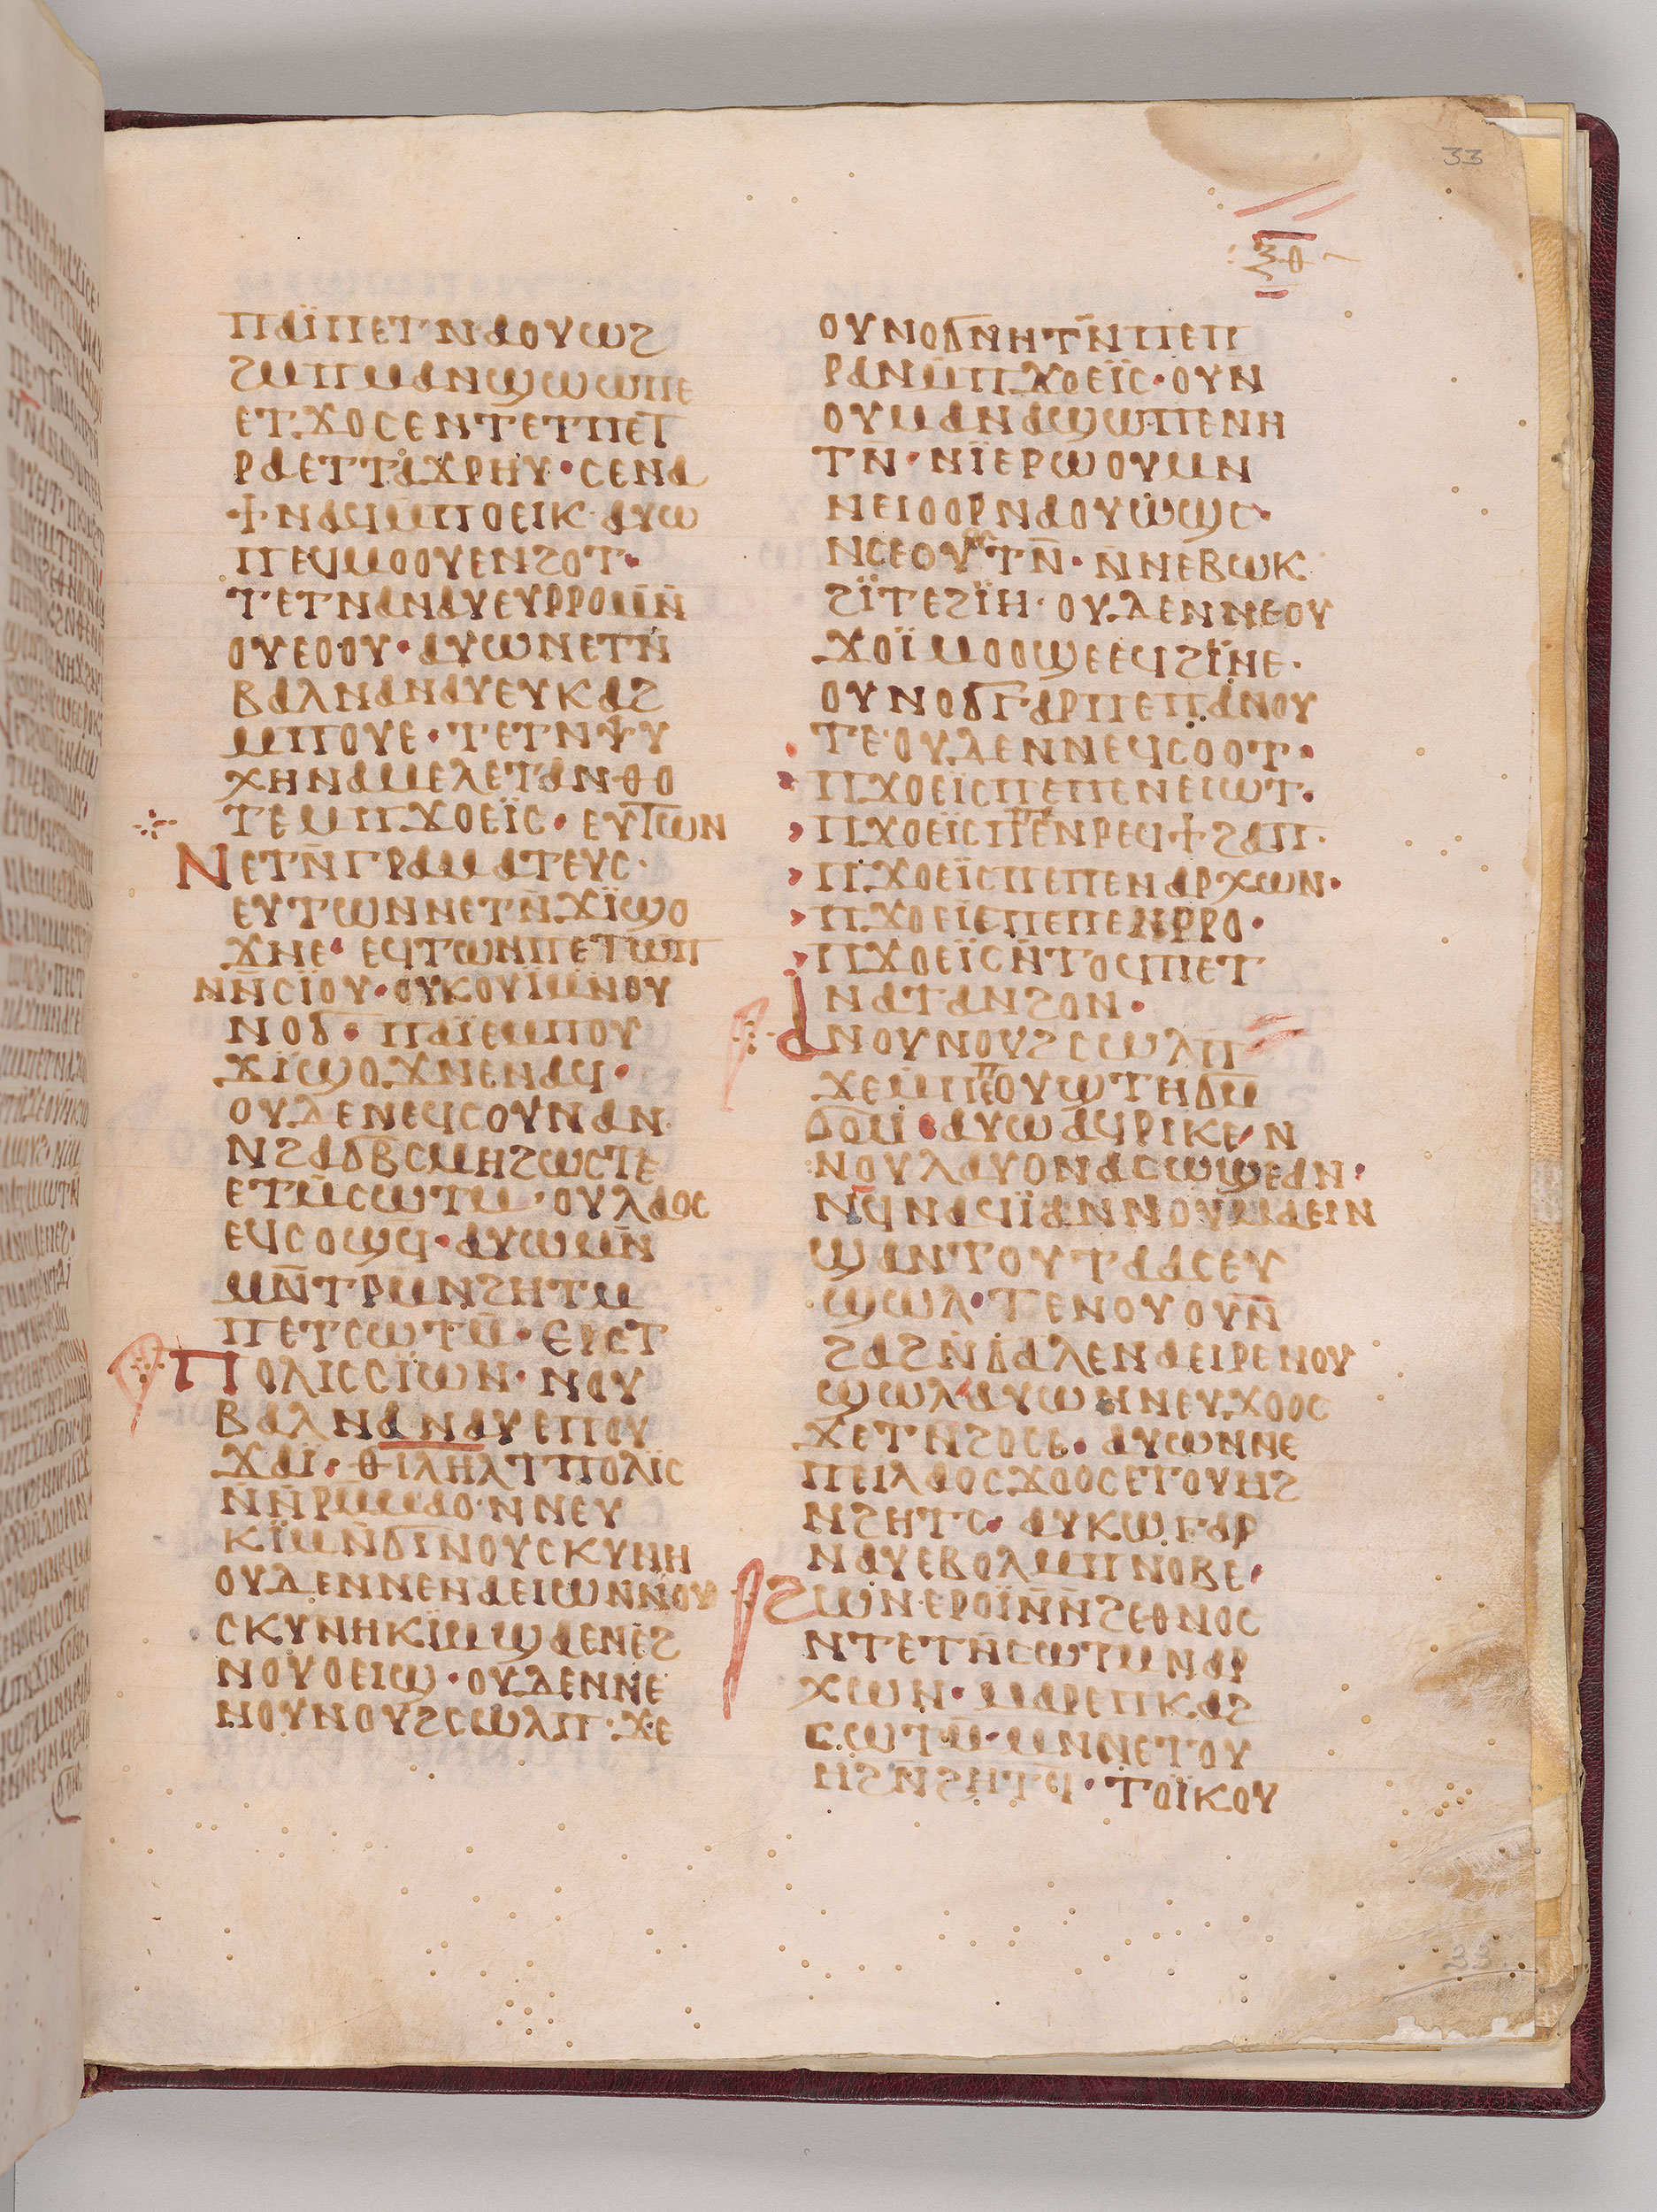 33
ⲝⲑ
ⲡⲁⲓ̈ⲡⲉⲧⲛⲁⲟⲩⲱϩ
ϩⲙⲡⲙⲁⲛϣⲱⲱⲡⲉ
ⲉⲧϫⲟⲥⲉⲛⲧⲉⲧⲡⲉⲧ
ⲣⲁⲉⲧⲧⲁϫⲣⲏⲩ · ⲥⲉⲛⲁ
ϯⲛⲁϥⲙ̄ⲡⲟⲉⲓⲕ · ⲁⲩⲱ
ⲡⲉϥⲙⲟⲟⲩⲉⲛϩⲟⲧ ·
ⲧⲉⲧⲛⲁⲛⲁⲩⲉⲩⲣⲣⲟⲙ̄ⲛ̄
ⲟⲩⲉⲟⲟⲩ · ⲁⲩⲱⲛⲉⲧⲛ̄
ⲃⲁⲗⲛⲁⲛⲁⲩⲉⲩⲕⲁϩ
ⲙⲡⲟⲩⲉ · ⲧⲉⲧⲛⲯⲩ
ⲭⲏⲛⲁⲙⲉⲗⲉⲧⲁⲛⲑⲟ
ⲧⲉⲙⲡϫⲟⲉⲓ̈ⲥ · ⲉⲩⲧⲱⲛ
ⲛⲉⲧⲛ̄ⲅⲣⲁⲙⲁⲧⲉⲩⲥ ·
ⲉⲩⲧⲱⲛⲛⲉⲧⲛ̄ϫⲓ̈ϣⲟ
ϫⲛⲉ · ⲉϥⲧⲱⲛⲡⲉⲧⲱⲡ
ⲛⲛ̄ⲥⲓ̈ⲟⲩ · ⲟⲩⲕⲟⲩⲓ̈ⲙⲛ̄ⲟⲩ
ⲛⲟϭ · ⲡⲁⲓ̈ⲉⲙⲡⲟⲩ
ϫⲓ̈ϣⲟϫⲛⲉⲛⲁϥ ·
ⲟⲩⲇⲉⲛⲉϥⲥⲟⲩⲛⲁⲛ ·
ⲛϩⲁϭⲃⲥⲙⲏϩⲱⲥⲧⲉ
ⲉⲧⲙ̄ⲥⲱⲧⲙ · ⲟⲩⲗⲁⲟⲥ
ⲉϥⲥⲟϣϥ · ⲁⲩⲱⲙⲛ̄
ⲙⲛ̄ⲧⲣⲙ̄ⲛϩⲏⲧⲙ
ⲡⲉⲧⲥⲱⲧⲙ̄ · ⲉⲣⲥⲧ
ⲡⲟⲗⲓⲥⲥⲓ̈ⲱⲛ · ⲛⲟⲩ
ⲃⲁⲗⲛⲁⲛⲁⲩⲉⲡⲟⲩ
ϫⲁⲓ̈ · ⲑⲓⲗⲏⲗⲧⲡⲟⲗⲓⲥ
ⲛ̄ⲛ̄ⲣⲙⲙⲁⲟ · ⲛⲛⲉⲩ
ⲕⲓ̈ⲙⲛ̄ϭⲓⲛⲟⲩⲥⲕⲩⲛⲏ
ⲟⲩⲇⲉⲛⲛⲉⲛⲁⲉⲓⲱⲛⲛⲟⲩ
ⲥⲕⲩⲛⲏⲕⲓ̈ⲙϣⲁⲉⲛⲉϩ
ⲛⲟⲩⲟⲉⲓϣ · ⲟⲩⲇⲉⲛⲛⲉ
ⲛⲟⲩⲛⲟⲩϩⲥⲱⲗⲡ · ϫⲉ
ⲟⲩⲛⲟϭⲛⲏⲧⲛ̄ⲡⲉⲡ
ⲣⲁⲛⲙ̄ⲡϫⲟⲉⲓ̈ⲥ · ⲟⲩⲛ
ⲟⲩⲙⲁⲛⲁϣⲱⲡⲉⲛⲏ
ⲧⲛ̄ · ⲛⲓ̈ⲉⲣⲱⲟⲩⲙⲛ
ⲛⲉⲓⲟⲟⲣⲛⲁⲟⲩⲱϣⲥ ·
ⲛⲥⲉⲟⲩⲧⲛ̄ · ⲛ̄ⲛⲉⲃⲱⲕ
ϩⲓ̈ⲧⲉϩⲓ̈ⲏ · ⲟⲩⲇⲉⲛⲛⲉⲟⲩ
ϫⲟⲓ̈ⲙⲟⲟϣⲉⲉϥϩⲓ̈ⲛⲉ ·
ⲟⲩⲛⲟϭⲅⲁⲣⲡⲉⲡⲁⲛⲟⲩ
ⲧⲉ · ⲟⲩⲇⲉⲛⲛⲉϥⲥⲟⲟⲧ ·
ⲡϫⲟⲉⲓ̈ⲥⲡⲉⲡⲉⲛⲉⲓⲱⲧ ·
ⲡϫⲟⲉⲓ̈ⲥⲡⲡⲉⲉⲛⲣⲉϥϯϩⲁⲡ ·
ⲡϫⲟⲉⲓ̈ⲥⲡⲉⲡⲉⲛⲁⲣⲭⲱⲛ ·
ⲡϫⲟⲉⲓ̈ⲥⲡⲉⲡⲉⲛⲣⲣⲟ ·
ⲡϫⲟⲉⲓ̈ⲥⲛ̄ⲧⲟϥⲡⲉⲧ
ⲛⲁⲧⲁⲛϩⲟⲛ ·
ⲁⲛⲟⲩⲛⲟⲩϩⲥⲱⲗⲡ
ϫⲉⲙ̄ⲡⲉⲡⲟⲩϣⲧⲏϭⲙ
ϭⲟⲙ · ⲁⲩⲱⲁϥⲣⲓⲕⲉⲛ
ⲛⲟⲩⲗⲁⲩⲟⲛⲁⲥⲱϣⲉⲁⲛ ·
ⲛϥⲛⲁϥⲓ̈ⲁⲛⲛⲟⲩⲙⲁⲉⲓⲛ
ϣⲁⲛⲧⲟⲩⲧⲁⲁⲥⲉⲩ
ϣⲱⲗ · ⲧⲉⲛⲟⲩⲟⲩⲛ̄
ϩⲁϩⲛ̄ϭⲁⲗⲉⲛⲁⲉⲓⲣⲉⲛⲟⲩ
ϣⲱⲗⲁⲩⲱⲛⲛⲉⲩϫⲟⲟⲥ
ϫⲉⲧⲛ̄ϩⲟⲥⲉ · ⲁⲩⲱⲛⲛⲉ
ⲡⲉⲓⲗⲁⲟⲥϫⲟⲟⲥⲉⲧⲟⲩⲏϩ
ⲛϩⲏⲧⲥ · ⲁⲩⲕⲱⲅⲁⲣ
ⲛⲁⲩⲉⲃⲟⲗⲙⲡⲛⲟⲃⲉ ·
ϩⲱⲛⲉⲣⲟⲓ̈ⲛ̄ⲛ̄ϩⲉⲑⲛⲟⲥ
ⲛⲧⲉⲧⲛ̄ⲥⲱⲧⲙⲛⲁⲣ
ⲭⲱⲛ · ⲙⲁⲣⲉⲡⲕⲁϩ
ⲥⲱⲧⲙ̄ · ⲙⲛⲛⲉⲧⲟⲩ
ⲏϩⲛ̄ϩⲏⲧϥ̄ · ⲧⲟⲓ̈ⲕⲟⲩ
33